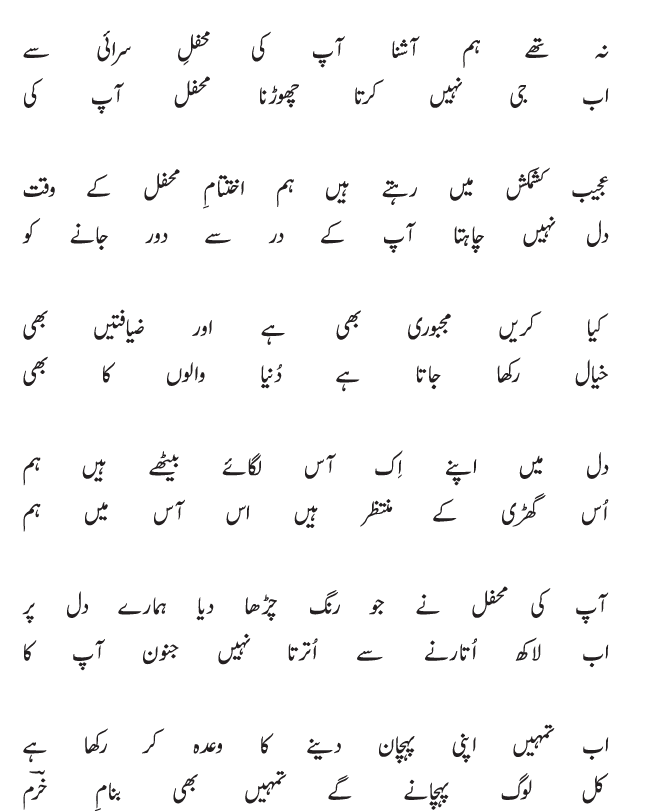 نہ تھے ہم آشنا آپ کی محفلِ سرائی سے
اب جی نہیں کرتا چھوڑنا محفل آپ کی
عجیب کشمکش میں رہتے ہیں ہم اختتامِ محفل کے وقت
دل نہیں چاہتا آپ کے در سے دور جانے کو
کیا کریں مجبوری بھی ہے اور ضیافتیں بھی
خیال رکھا جاتا ہے دُنیا والوں کا بھی
دل میں اپنے اِک آس لگائے بیٹھے ہیں ہم
اُس گھڑی کے منتظر ہیں اس آس میں ہم
آپ کی محفل نے جو رنگ چڑھا دیا ہمارے دل پر
اب لاکھ اُتارنے سے اُترتا نہیں جنون آپ کا
اب تمہیں اپنی پہچان دینے کا وعدہ کر رکھا ہے
کل لوگ پہچانے گے تمہیں بھی بنامِ خرّم